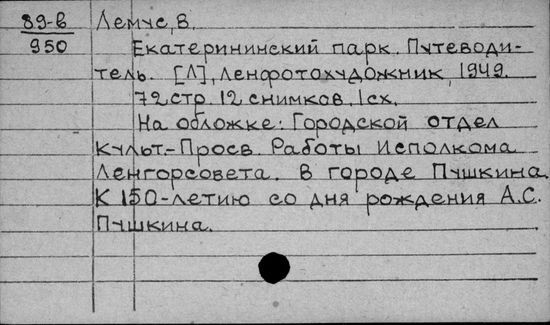 89-в Лемус, В.
950 Екатерининский парк. Путеводи-
тель. [Л], Ленфотохудожник, 1949.
72 стр. 12 снимков, 1 сх.
На обложке: Городской отдел
Культ-Просв. Работы Исполкома
Ленгорсовета. в городе Пушкина
К 150-летию со дня рождения А.С.
Пушкина.